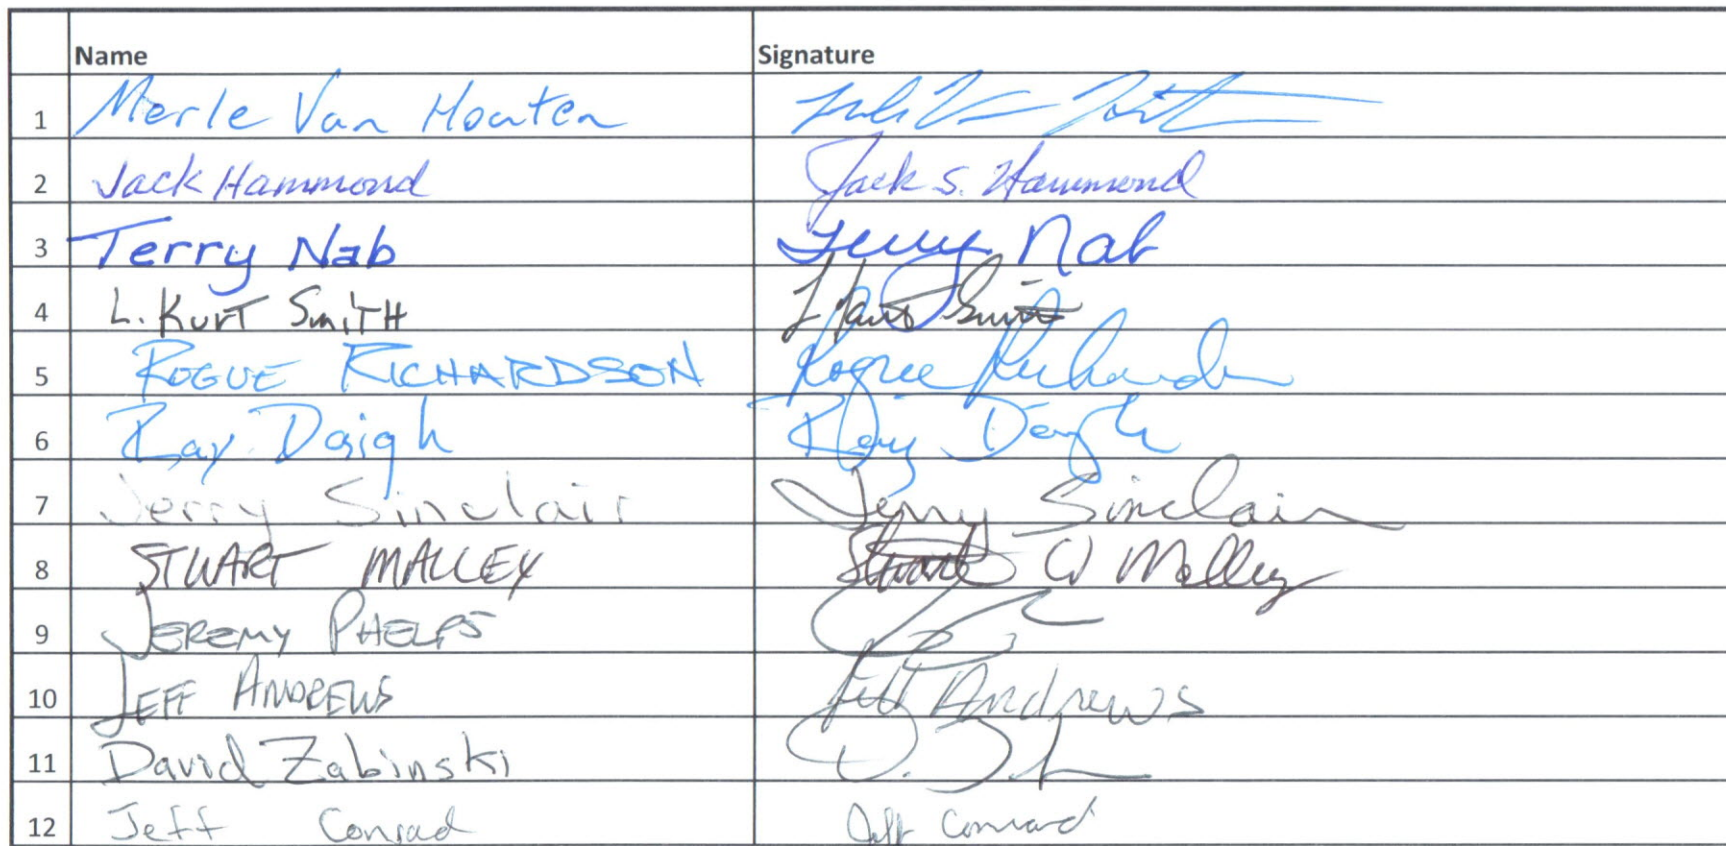 Name Signature
1 Merle Van Houten
2 Jack Hammond Jack S. Hammond
3 Terry Nab Terry Nab
4 L. Kurt Smith L Kurt Smith
5 ROGUE RICHARDSON Rogue Richardson
6 Ray Daigh Ray Daigh
7 Jerry Sinclair Jerry Sinclair
8 STUART MALLEY Stuart W Malley
9 JEREMY PHELPS
10 JEFF ANDREWS Jeff Andrews
11 David Zabinski D. Z
12 Jeff Conrad Jeff Conrad